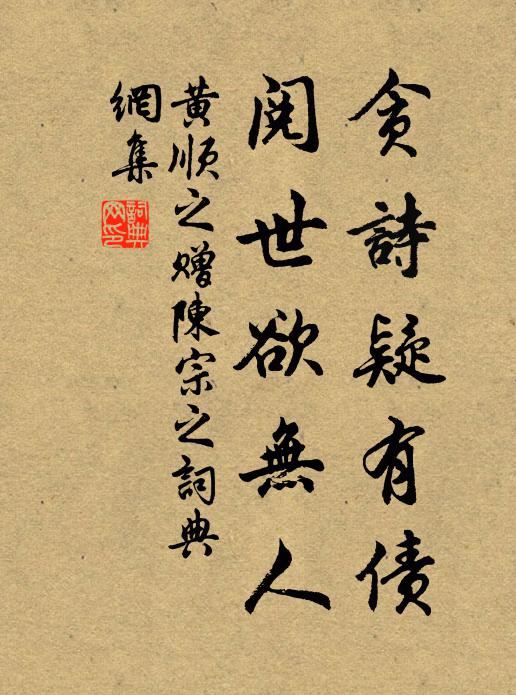 貪詩疑有債
閱世欲無人
黃順之贈陳宗之詞典
網集
詞典網印